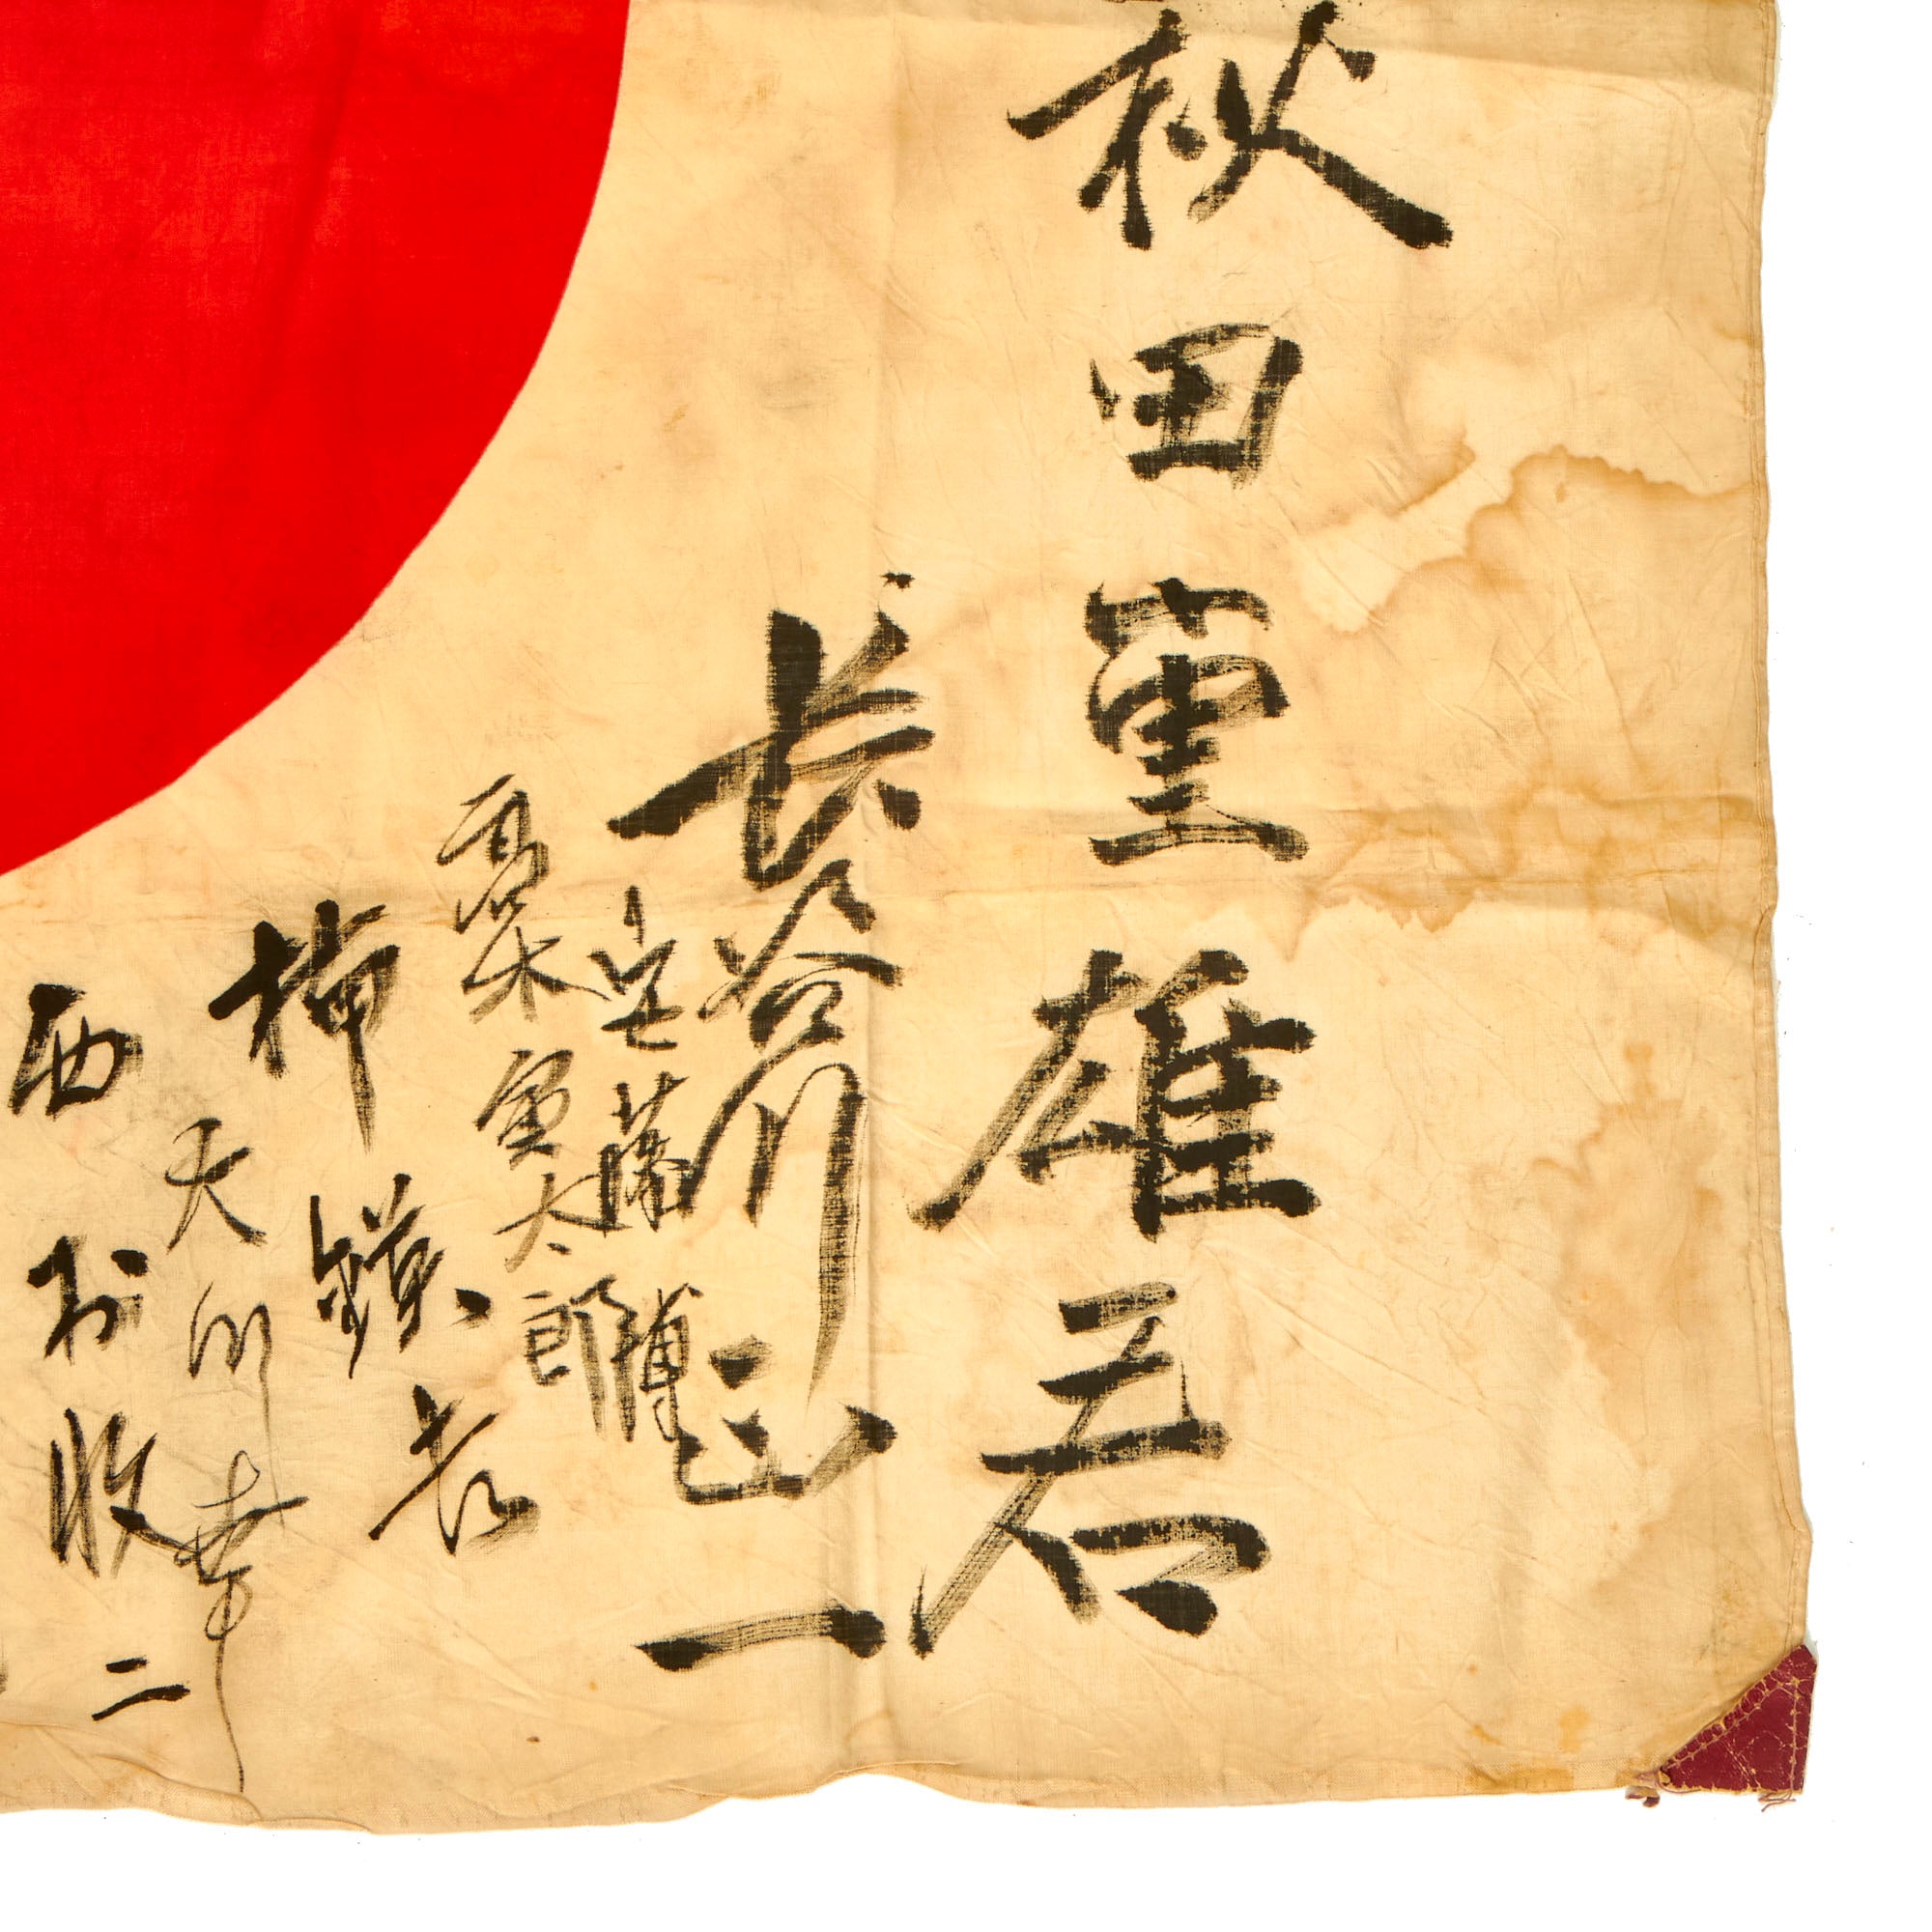 秋田重雄君
長谷川正一
安藤博
高木重太郎
柳鎮衣
天川幸
西村收二